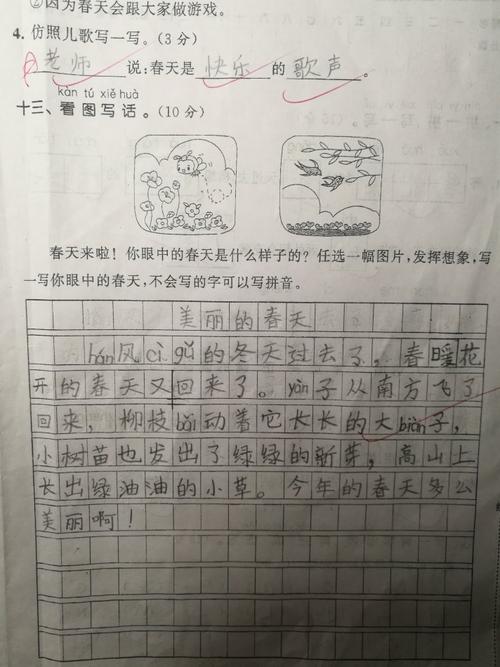 ②因为春天会跟大家做游戏。
4. 仿照儿歌写一写。(3分)
老师说:春天是快乐的歌声。
kàn tú xiě huà
十三、看图写话。(10分)
春天来啦!你眼中的春天是什么样子的?任选一幅图片,发挥想象,写
一写你眼中的春天,不会写的字可以写拼音。
美丽的春天
hán风cì gǔ的冬天过去了,春暖花
开的春天又回来了。yàn子从南方飞了
回来,柳枝bǎi动着它长长的大biàn子,
小树苗也发出了绿绿的新芽,高山上
长出绿油油的小草。今年的春天多么
美丽啊!